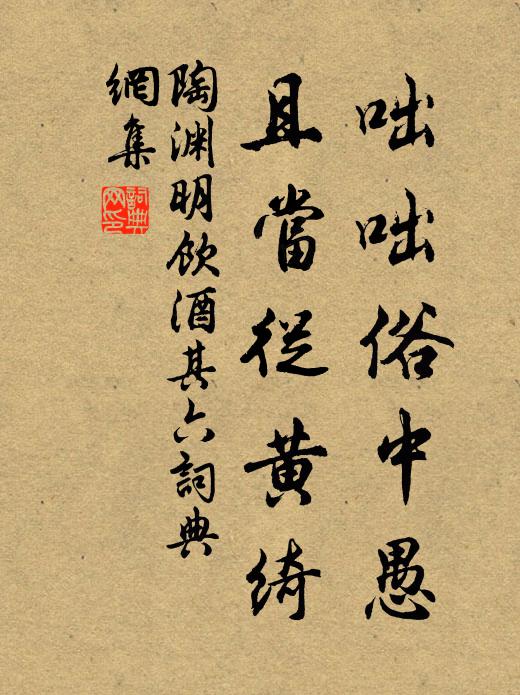 咄咄俗中愚
且當從黄綺
陶渊明飲酒其六詞典
網集
詞典
网印